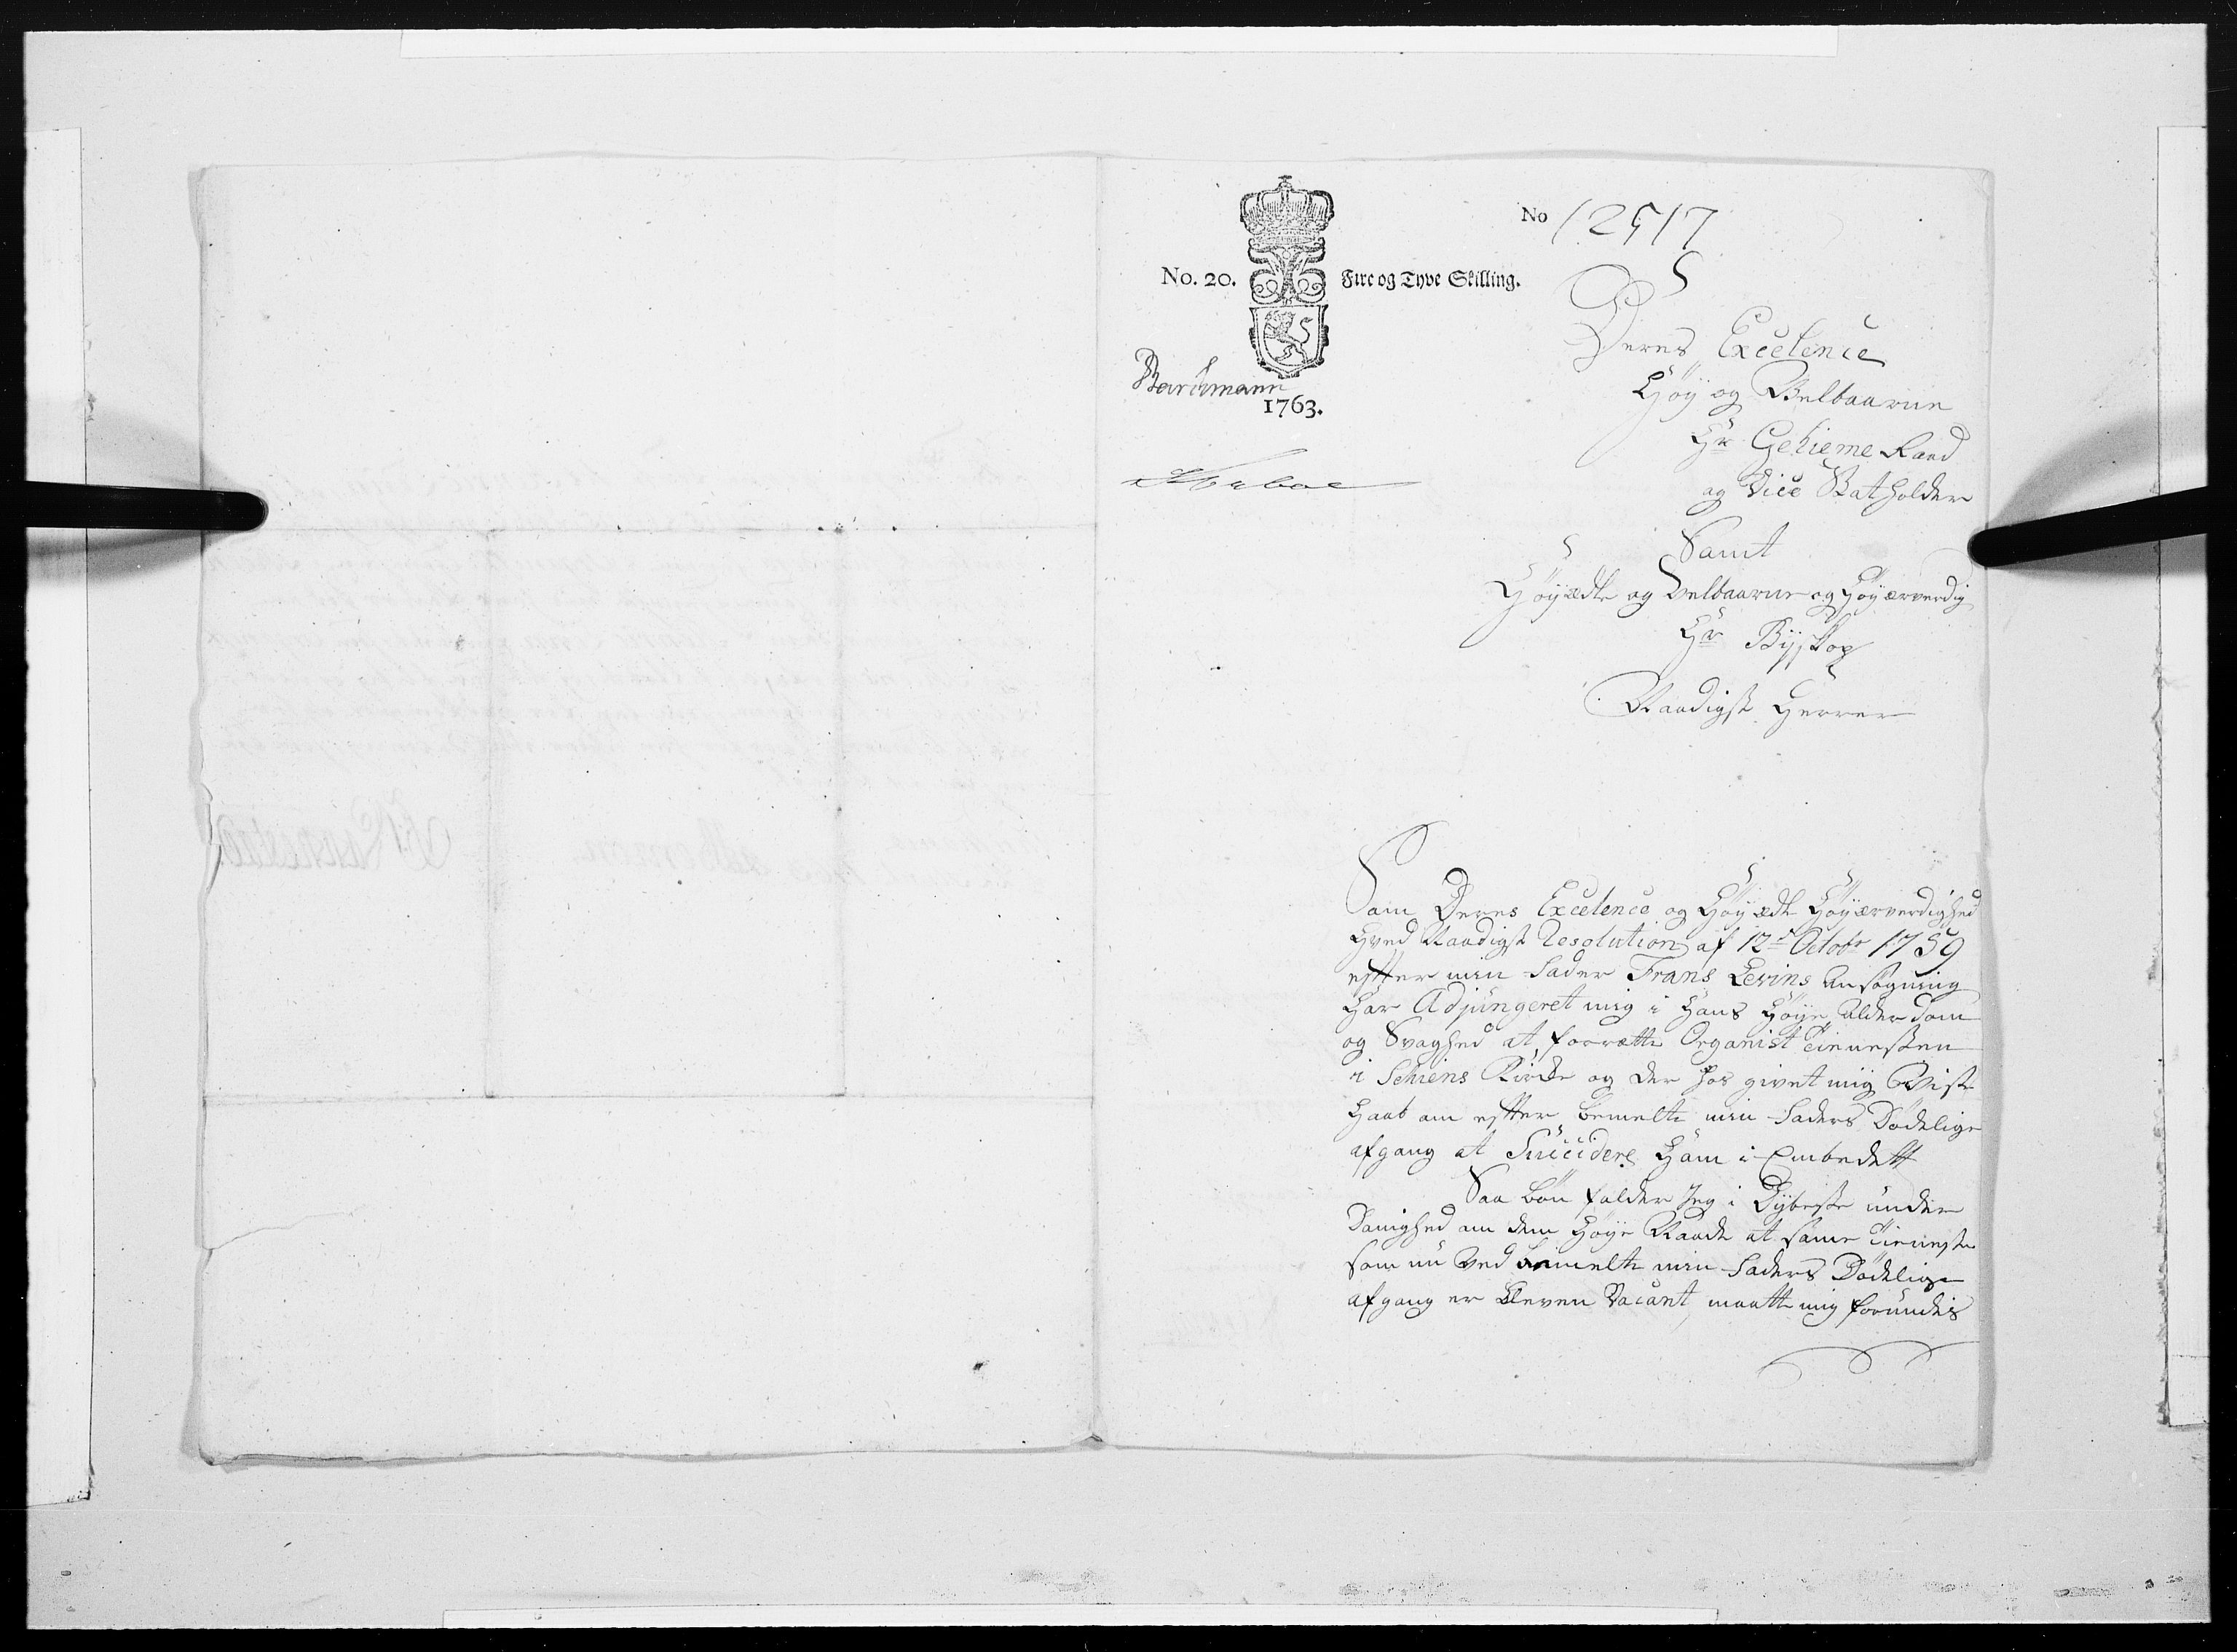 No 12517
No. 20. Fire og Tyve Skilling.
Barchmann
1763.
Deres Excelence
Høÿ og Velbaarne
Hr Gehieme Raad
og Vice Statholder
Samt
Høÿædle og Velbaarne og Høÿærverdig
Hr Bijskop
Naadigst Herrer
Som Deres Excelence og Høÿædle Høÿærverdighed
Hved Naadigst Resolution af 12te Octobr 1759
effter min Fader Frans Levins Ansøgning
Har Adjungeret mig i Hans Høÿe Alderdom
og Svaghed at forrætte Organist Tienesten
i Schiens Kircke og der hos givet mig Viste
Haab om effter bemelte min Faders Dødelige
afgang at Succidere Ham i Embedett
Saa bøn falder Jeg i Dÿbeste under
Danighed om dem Høÿe Naade at same Tieneste
som nu Ved bemelte min Faders Dødelige
afgang er bleven Vacant, maatte mig forundes